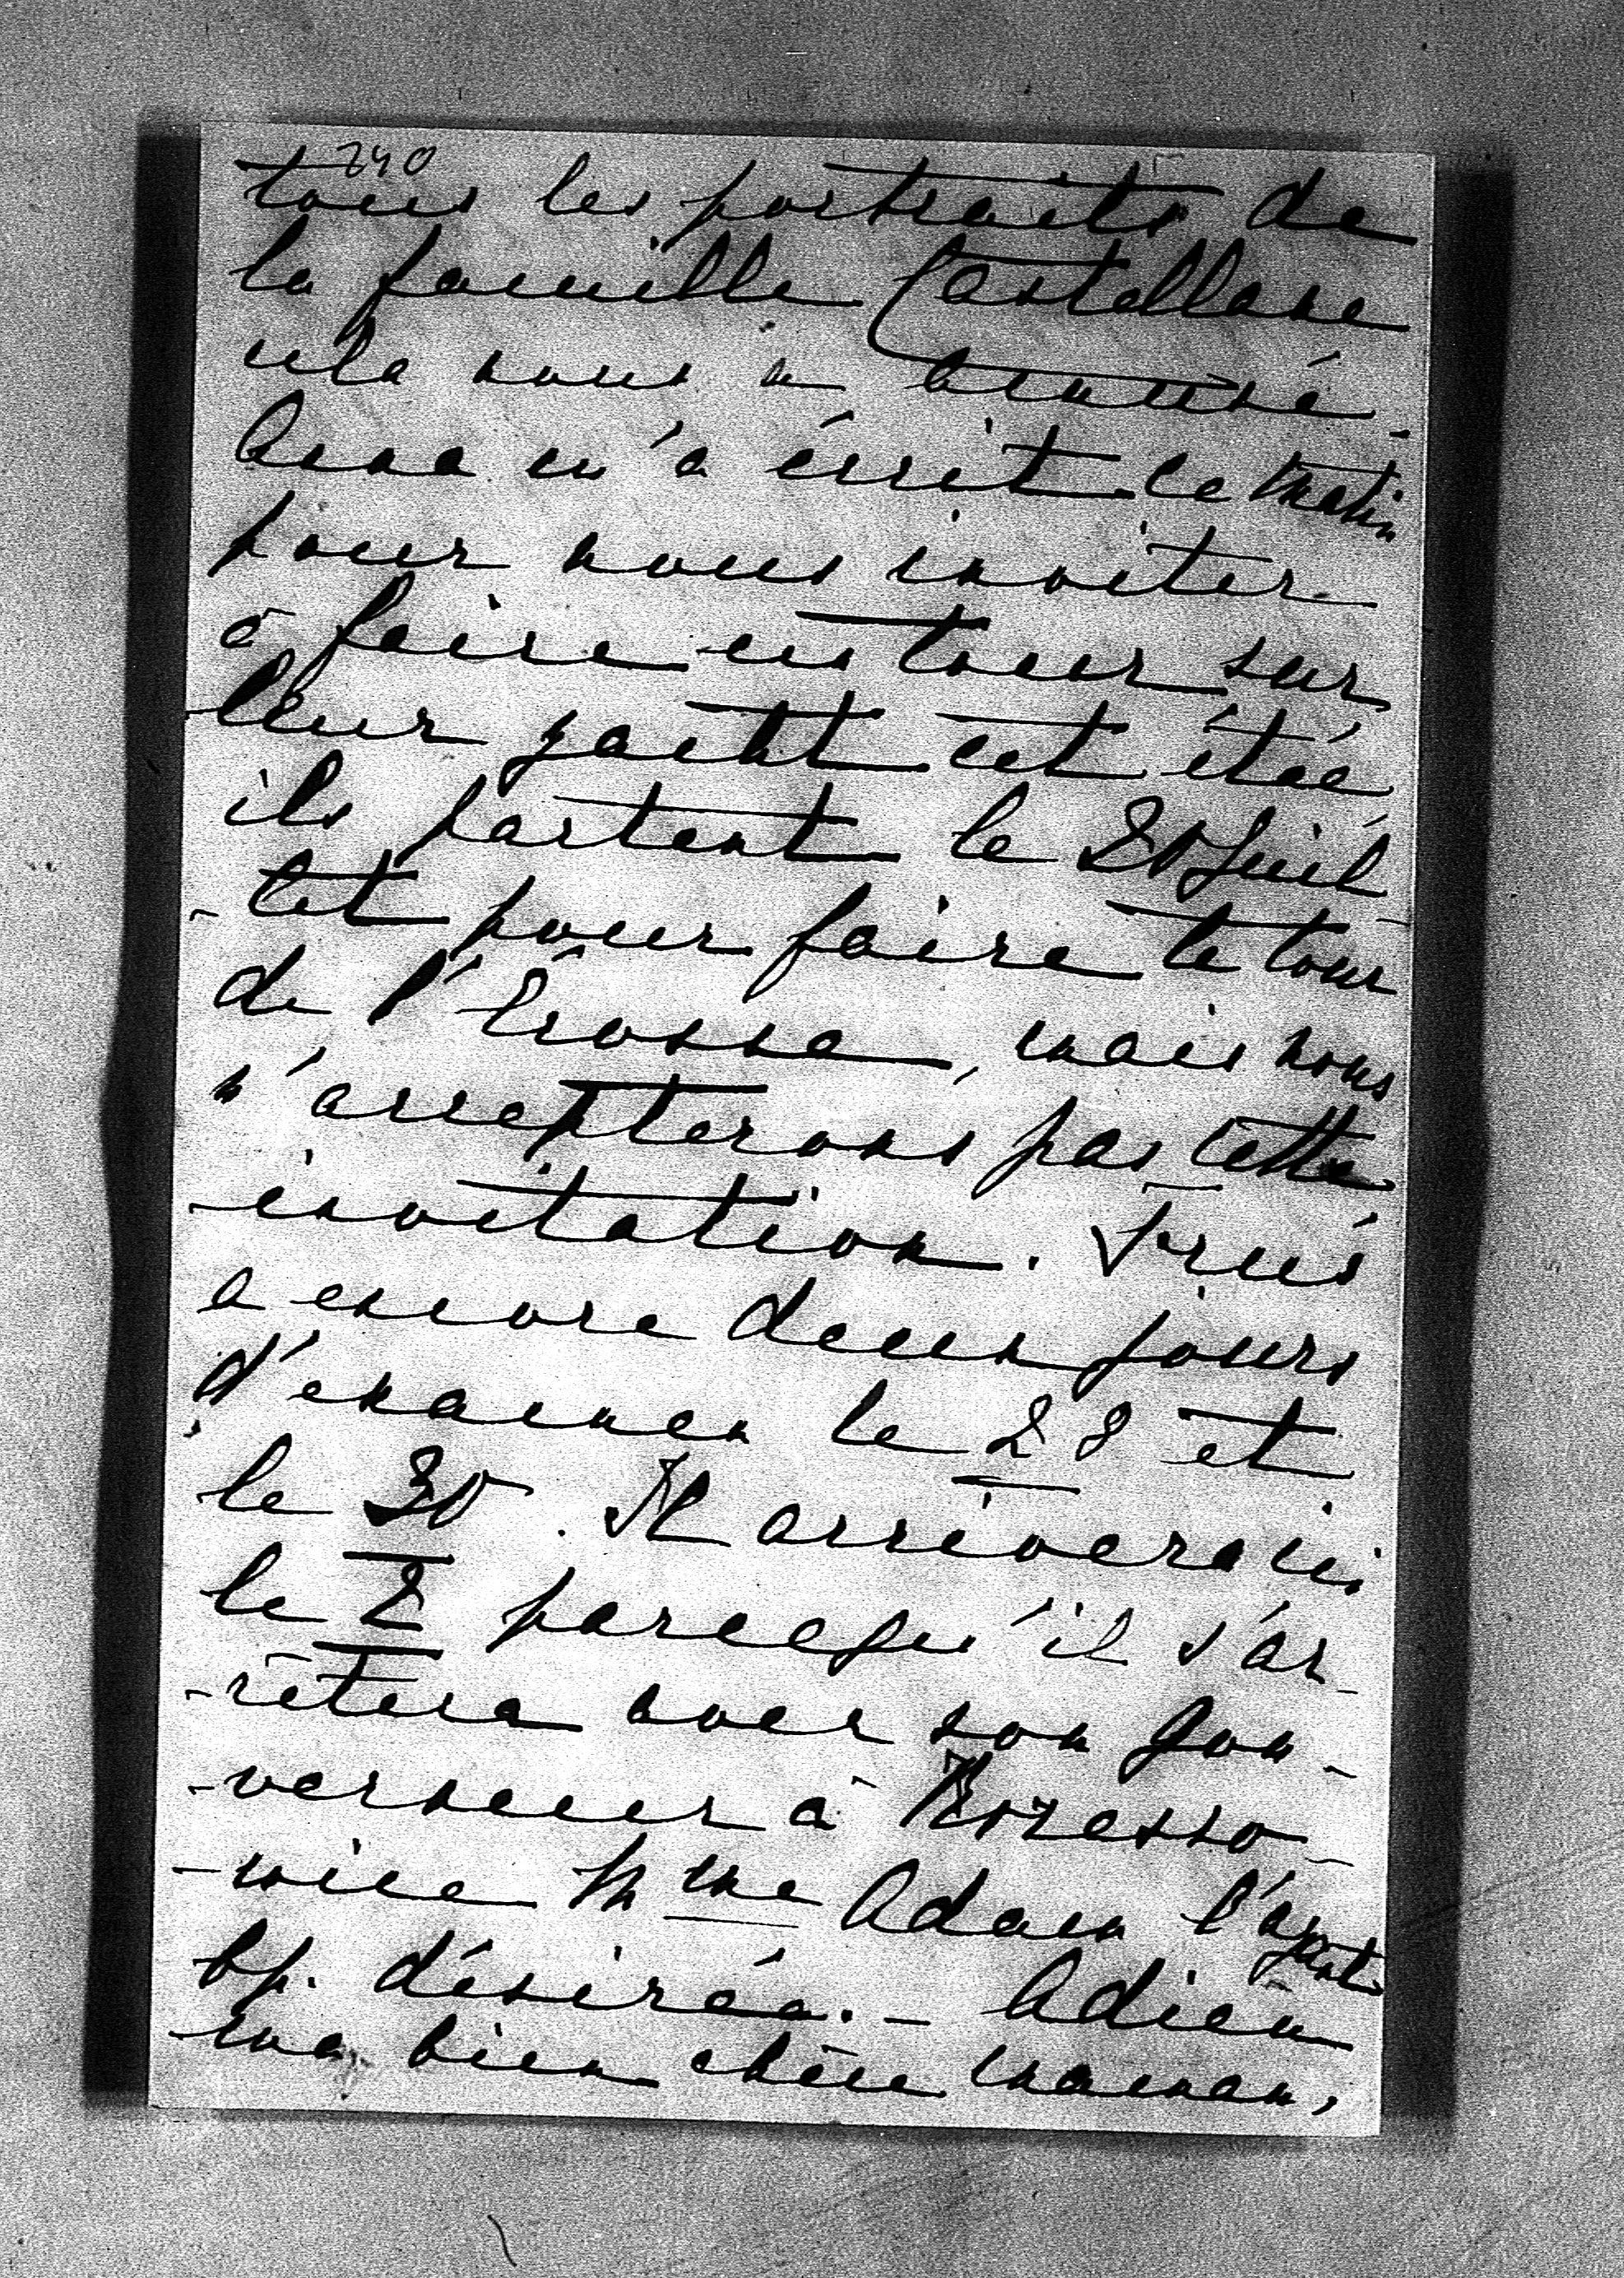 240
tous les portraits de
la famille Castellane
cela nous a amusé.
Anna m'a écrit ce matin
pour nous inviter
à faire un tour sur
leur yacht cet étée
ils partent le 20 Juil
-let pour faire le tour
de l'Ecosse, mais nous
n'accepterons pas cette
invitation.
a encore deux jours
d'examen le 28 et
le 30. Il arrivera ici
le 2 parcequ'il s'ar-
-rêtera avec son gou-
-verneur à
Mme Adam l'a
bp. désirée. — Adieu
ma bien chère maman,